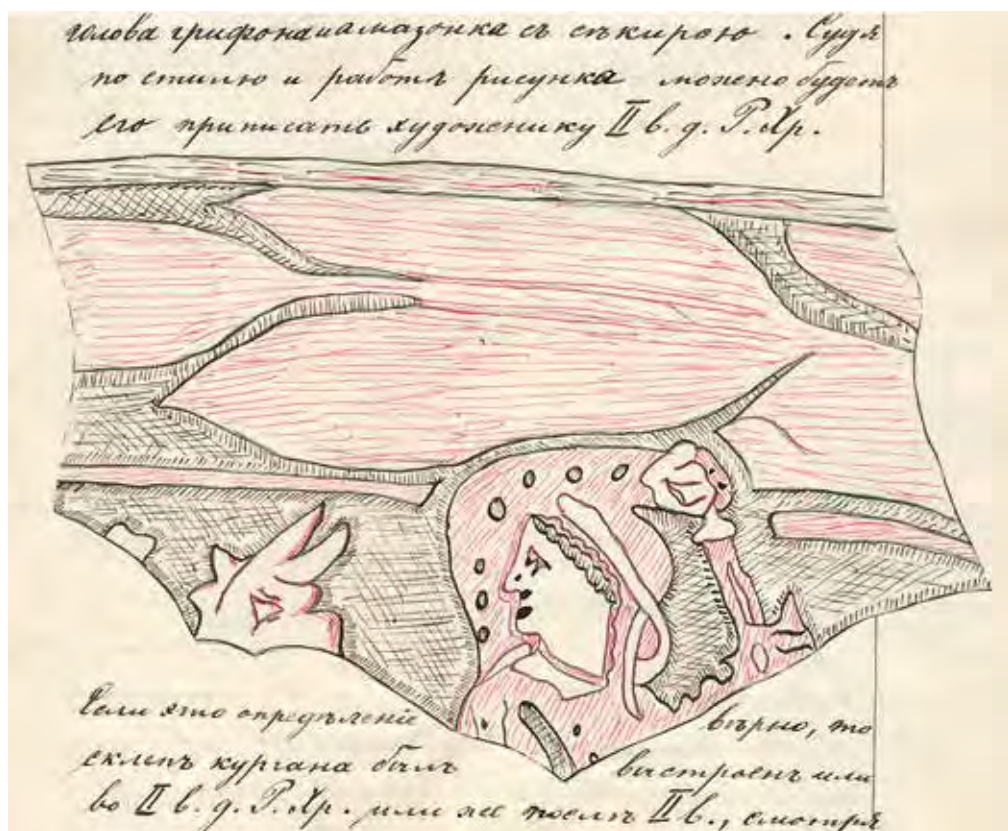 голова грифона и амазонка съ сѣкирою. Судя
по стилю и работѣ рисунка можно будетъ
его приписать художнику II в. д. Р. Хр.
Если это опредѣленіе вѣрно, то
склепъ кургана былъ выстроенъ или
во II в. д. Р. Хр. или же послѣ II в., смотря